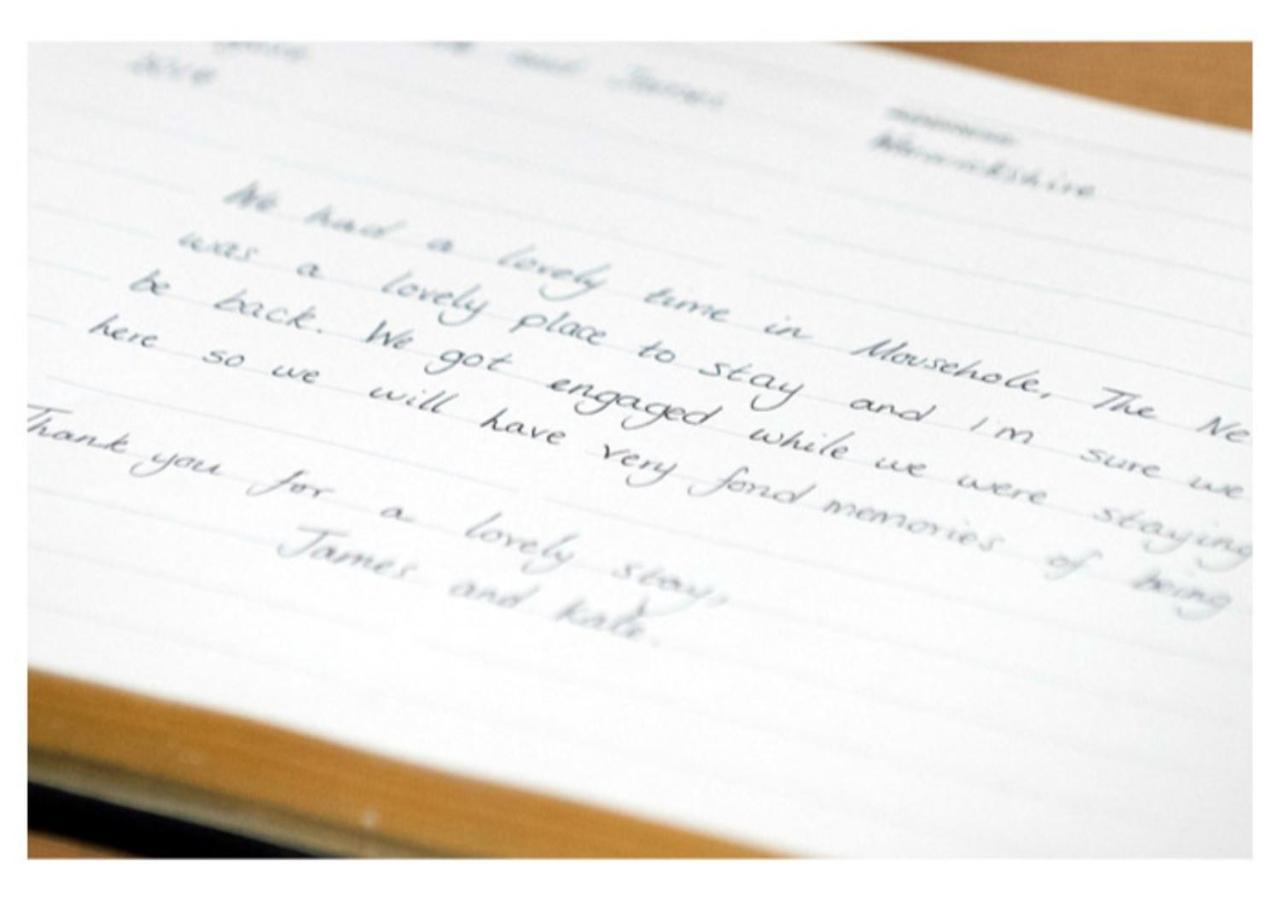 2014
and James
Warwickshire
We had a lovely time in Mousehole, The Ne
was a lovely place to stay and I'm sure we
be back. We got engaged while we were staying
here so we will have very fond memories of being
Thank you for a lovely stay,
James and Kate.